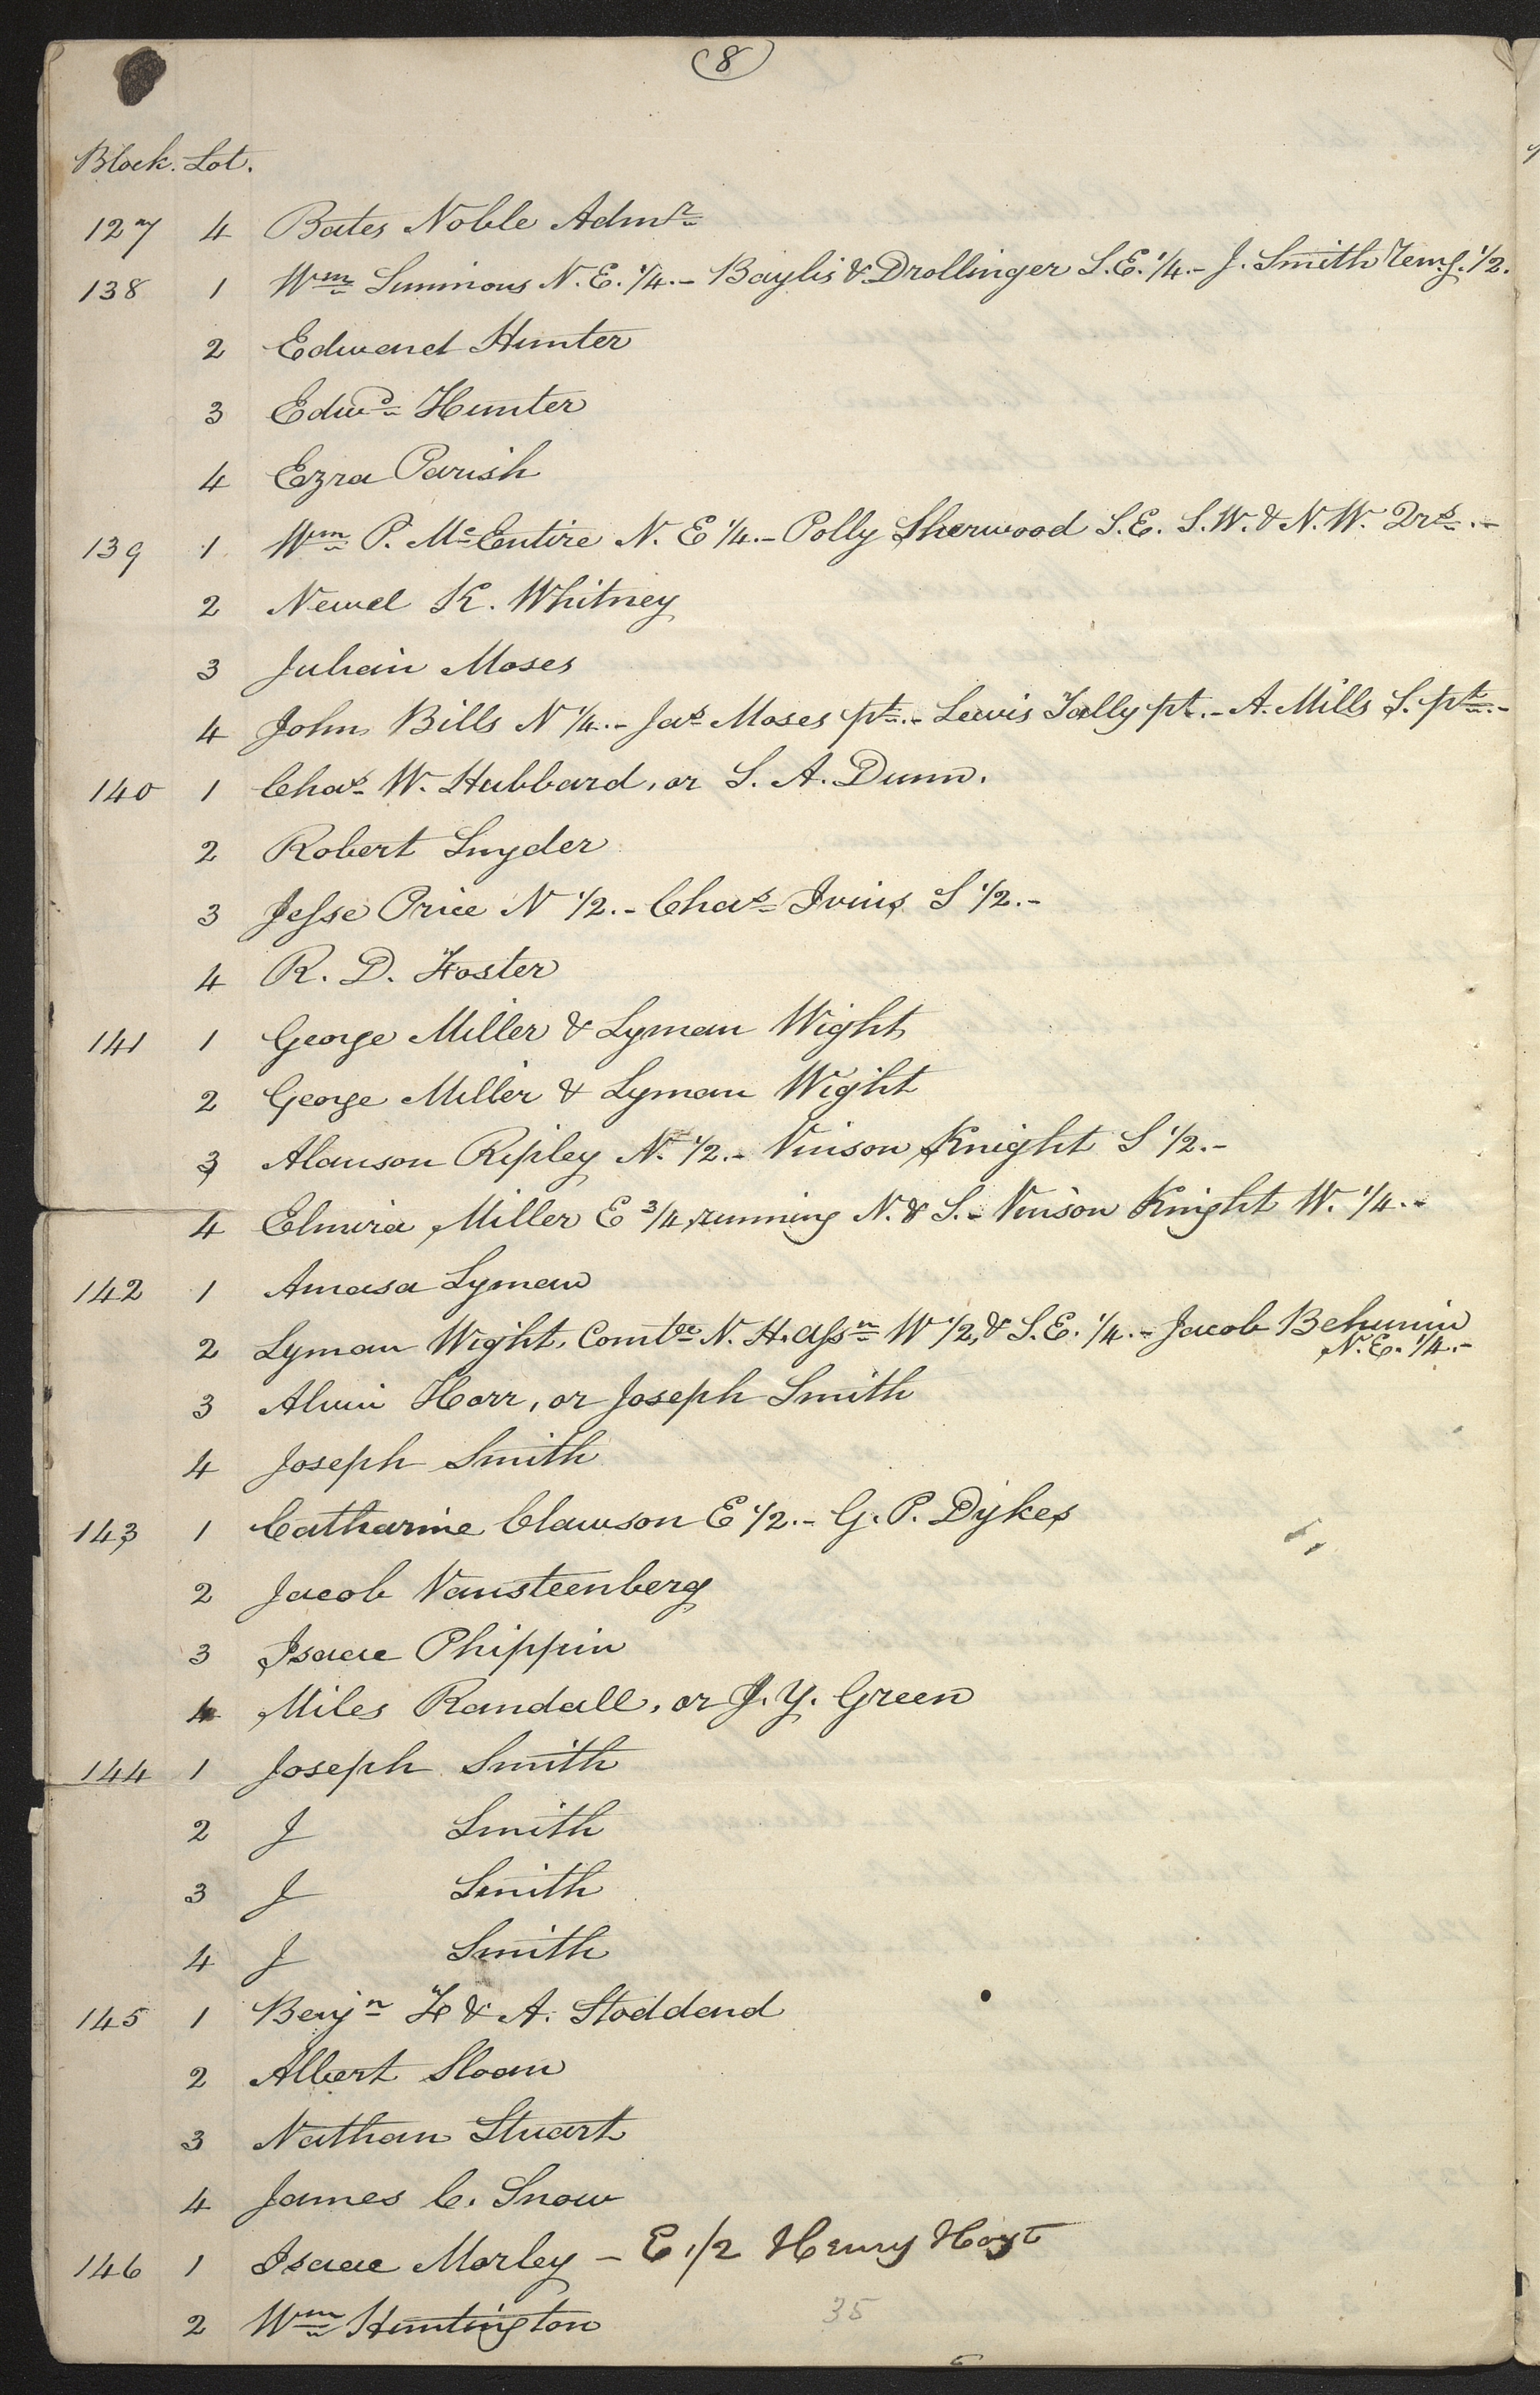 (8)
Block. Lot.
127 4 Bates Noble Admr
138 1 Wm Simmons N.E. 1/4.- Baylis & Drollinger S.E. 1/4.- J. Smith Remg. 1/2.
2 Edward Hunter
3 Edwd Hunter
4 Ezra Parish
139 1 Wm P. McEntire N. E 1/4.- Polly Sherwood S.E. S.W. & N.W. Qrs.-
2 Newel K. Whitney
3 Julian Moses
4 John Bills N 1/4.- Jas Moses pt.- Lewis Tally pt.- A. Mills S. pt.-
140 1 Chas W. Hubbard, or S. A. Dunn.
2 Robert Snyder
3 Jesse Price N 1/2.- Chas Ivins S 1/2.-
4 R. D. Foster
141 1 George Miller & Lyman Wight
2 George Miller & Lyman Wight
3 Alanson Ripley N. 1/2.- Vinson Knight S 1/2.-
4 Elmira Miller E 3/4 running N. & S.- Vinson Knight W. 1/4.-
142 1 Amasa Lyman
2 Lyman Wight, Comtee N. H. Assn W 1/2, & S.E. 1/4.- Jacob Behunin
N.E. 1/4.-
3 Alvin Horr, or Joseph Smith
4 Joseph Smith
143 1 Catharine Clawson E 1/2.- G. P. Dykes
2 Jacob Vansteenberg
3 Isaac Phippin
4 Miles Randall, or J. Y. Green
144 1 Joseph Smith
2 J Smith
3 J Smith
4 J Smith
145 1 Benjn F & A. Stoddard
2 Albert Sloan
3 Nathan Stuart
4 James C. Snow
146 1 Isaac Morley - E 1/2 Henry Hoyt
2 Wm Huntington
35